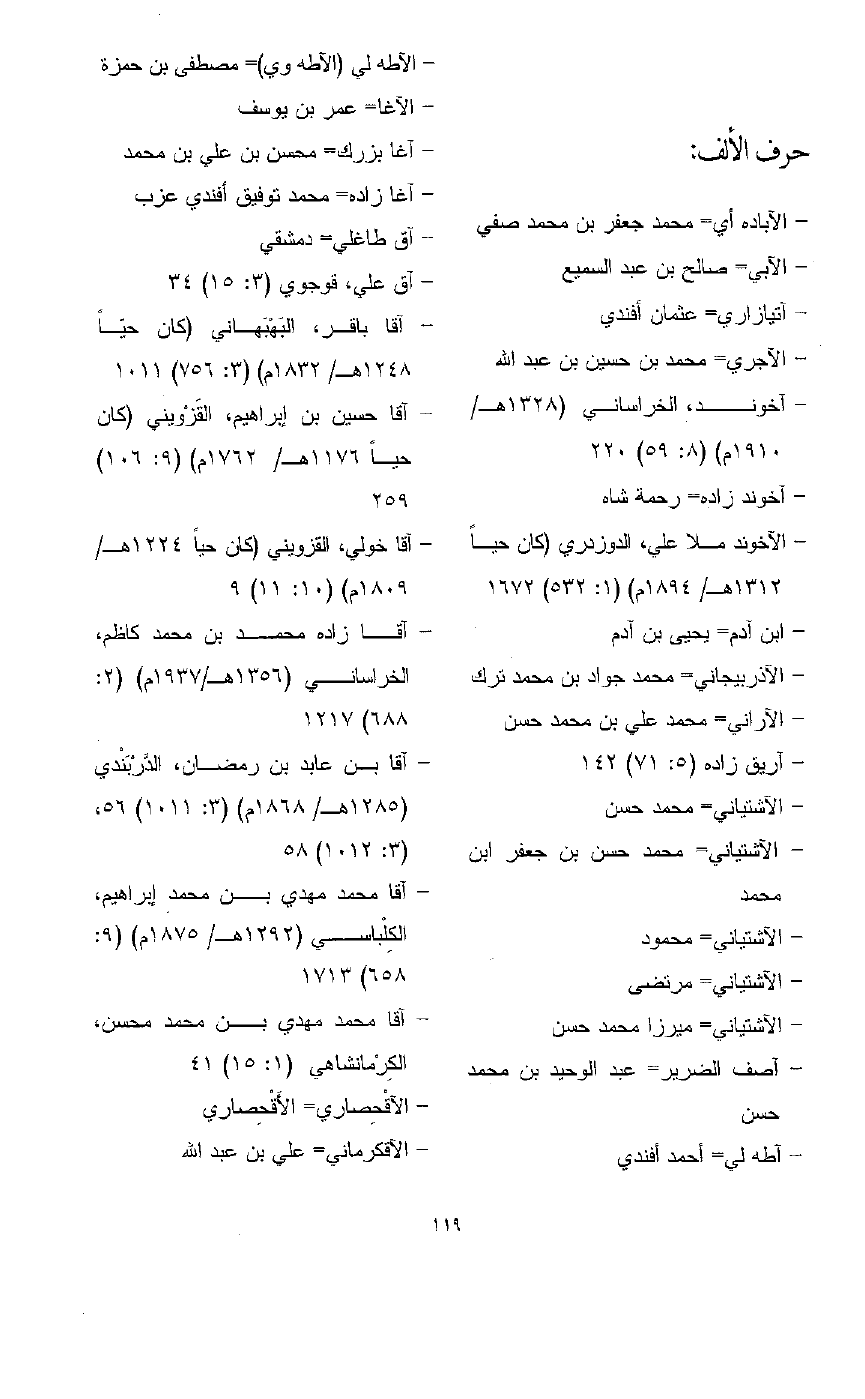 حرف الألف:
- الآباده أي= محمد جعفر بن محمد صفي
- الآبي= صالح بن عبد السميع
- آتيازاري= عثمان أفندي
- الآجري= محمد بن حسين بن عبد الله
- آخوند، الخراساني (١٣٢٨هـ/
١٩١٠م) (٨: ٥٩) ٢٢٠
- آخوند زاده= رحمة شاه
- الآخوند ملا علي، الدوزدري (كان حياً
١٣١٢هـ/ ١٨٩٤م) (١: ٥٣٢) ١٦٧٢
- ابن آدم= يحيى بن آدم
- الآذربيجاني= محمد جواد بن محمد ترك
- الآراني= محمد علي بن محمد حسن
- آريق زاده (٥: ٧١) ١٤٢
- الآشتياني= محمد حسن
- الآشتياني= محمد حسن بن جعفر ابن
محمد
- الآشتياني= محمود
- الآشتياني= مرتضى
- الآشتياني= ميرزا محمد حسن
- آصف الضرير= عبد الوحيد بن محمد
حسن
- آطه لي= أحمد أفندي
- الآطه لي (الآطه وي)= مصطفى بن حمزة
- الآغا= عمر بن يوسف
- آغا بزرك= محسن بن علي بن محمد
- آغا زاده= محمد توفيق أفندي عزب
- آق طاغلي= دمشقي
- آق علي، قوجوي (٣: ١٥) ٣٤
- آقا باقر، البَهْبَهاني (كان حيّاً
١٢٤٨هـ/ ١٨٣٢م) (٣: ٧٥٦) ١٠١١
- آقا حسين بن إبراهيم، القَزْويني (كان
حياً ١١٧٦هـ/ ١٧٦٢م) (٩: ١٠٦)
٢٥٩
- آقا خولي، القزويني (كان حياً ١٢٢٤هـ/
١٨٠٩م) (١٠: ١١) ٩
- آقا زاده محمد بن محمد كاظم،
الخراساني (١٣٥٦هـ/١٩٣٧م) (٢:
٦٨٨) ١٢١٧
- آقا بن عابد بن رمضان، الدَّرْبَنْدي
(١٢٨٥هـ/ ١٨٦٨م) (٣: ١٠١١) ٥٦،
(٣: ١٠١٢) ٥٨
- آقا محمد مهدي بن محمد إبراهيم،
الكِلْباسي (١٢٩٢هـ/ ١٨٧٥م) (٩:
٦٥٨) ١٧١٣
- آقا محمد مهدي بن محمد محسن،
الكِرْمانشاهي (١: ١٥) ٤١
- الآقْحِصاري= الأَقْحِصاري
- الآقكرماني= علي بن عبد الله
١١٩